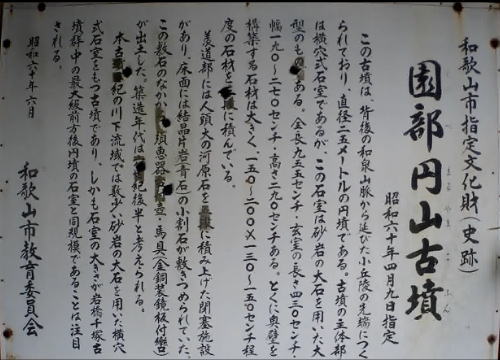 和歌山市指定文化財(史跡)
園部円山古墳
そのべまるやまこふん
昭和六十年四月九日指定
この古墳は、背後の和泉山脈から延びた小丘陵の先端につく
られており、直径二五メートルの円墳である。古墳の主体部
は横穴式石室であるが、この石室は砂岩の大石を用いた大
型のものである。全長九五五センチ・玄室の長さ四三〇センチ・
幅二九〇〜二七〇センチ・高さ二九〇センチある。とくに奥壁を
構築する石材は大きく、一五〇〜二〇〇×一三〇〜一五〇センチ程
度の石材を に積んでいる。
羨道部には人頭大の河原石を に積み上げた閉塞施設
があり、床面には結晶片岩(青石)の小割石が敷きつめられていた。
この敷石のなかから 須恵器 ・馬具(金銅装鏡板付轡)
が出土した。築造年代は 世紀後半と考えられる。
本古墳は紀の川下流域では数少い砂岩の大石を用いた横穴
式石室をもつ古墳であり、しかも石室の大きさが岩橋千塚古
墳群中の最大級前方後円墳の石室と同規模であることは注目
される。
昭和六十年六月
和歌山市教育委員会